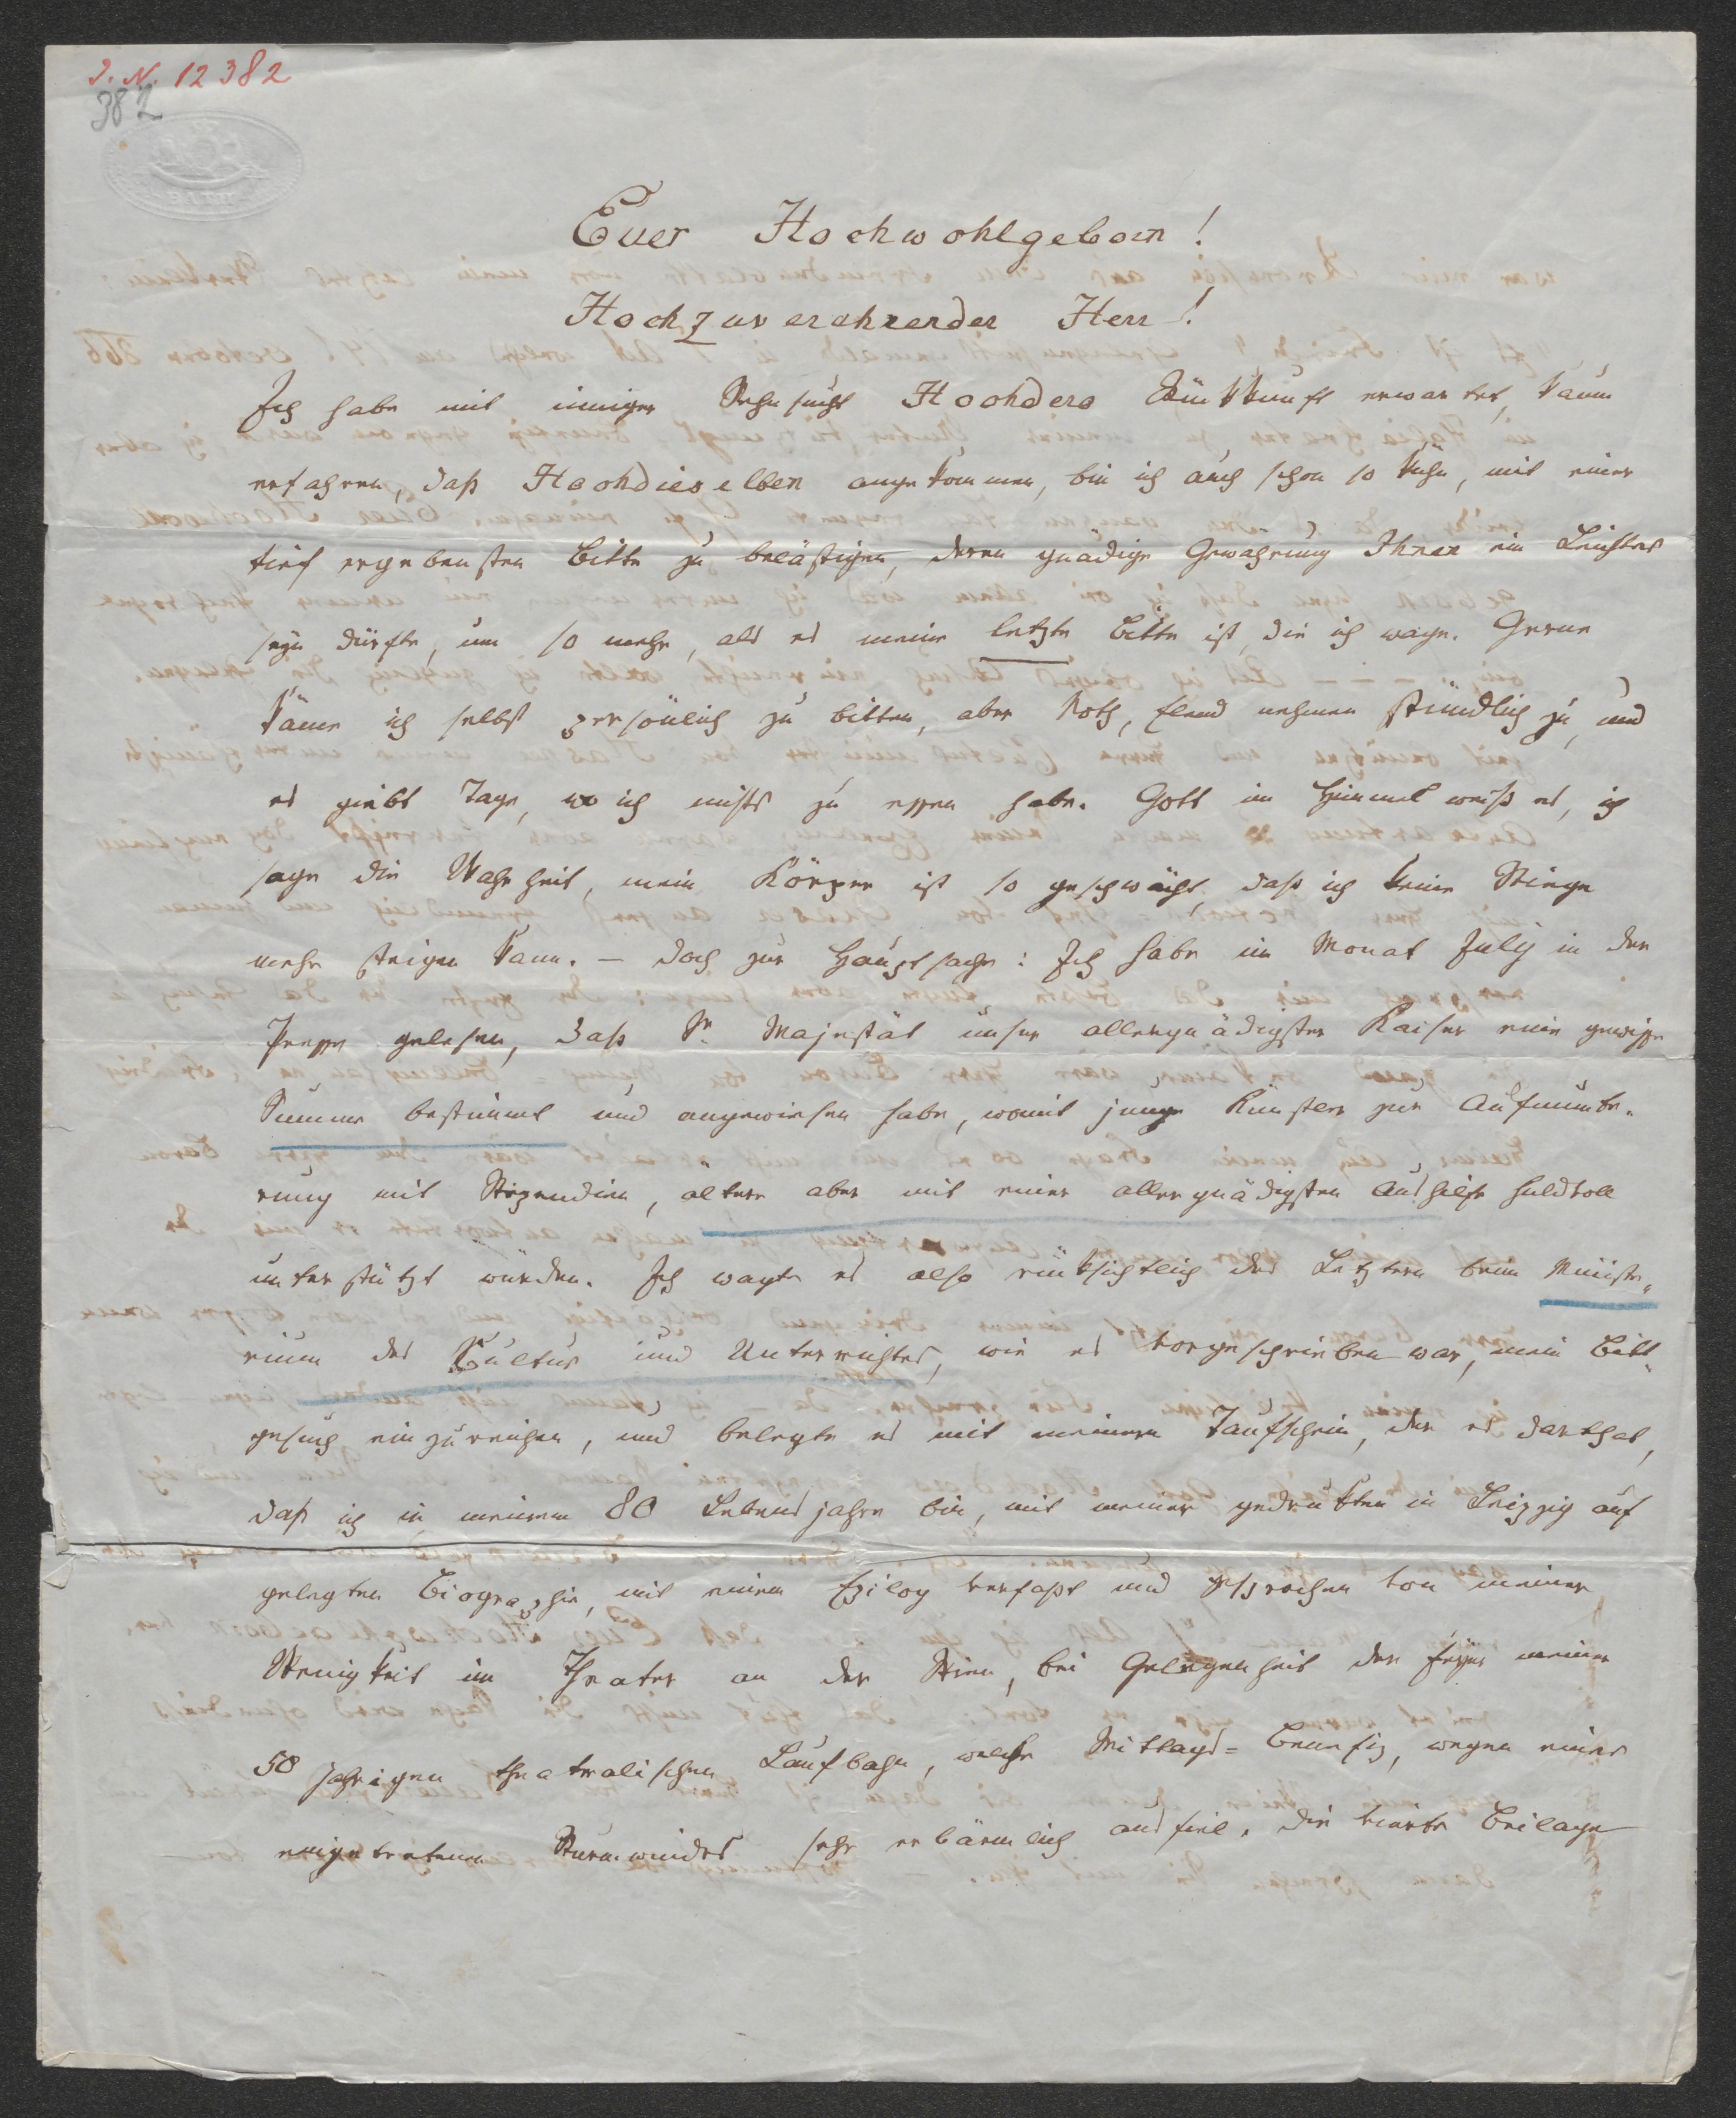 I. N. 12382
382
BATH
Euer Hochwohlgeborn!
Hochzuverehrender Herr!
Ich habe mit inniger Sehnsucht Hochdero Rückkunft erwartet, kaum
erfahren, daß Hochdieselben angekommen, bin ich auch schon so kühn, mit einer
tief ergebensten Bitte zu belästigen, deren gnädige Gewährung Ihnen ein Leichtes
seyn dürfte, um so mehr, als es meine letzte Bitte ist, die ich wage. Gerne
käme ich selbst persönlich zu bitten, aber Noth, Elend nehmen stündlich zu, und
es giebt Tage, wo ich nichts zu essen habe. Gott im Himmel weiß es, ich
sage die Wahrheit, mein Körper ist so geschwächt, daß ich keine Stiege
mehr steigen kann. – Doch zur Hauptsache: Ich habe im Monat July in der
Presse gelesen, daß Sr. Majestät unser allergnädigster Kaiser eine gewisse
Summe bestimmt und angewiesen habe, womit junge Künstler zur Aufmunte-
rung mit Stipendien, altere aber mit einer allergnädigsten Aushilfe huldvoll
unterstützt würden. Ich wagte es also rücksichtlich des Letztern beim Ministe-
rium des Cultus und Unterrichtes, wie es vorgeschrieben war, mein Bitt-
gesuch einzureichen, und belegte es mit meinem Taufschein, der es darthat,
daß ich in meinem 80 Lebensjahre bin, mit meiner gedruckten in Leipzig auf
gelegten Biographie, mit einem Epilog verfaßt und gesprochen von meiner
Wenigkeit im Theater an der Wien, bei Gelegenheit der Feyer meiner
50 jahrigen theatralischen Laufbahn, welche Mittags= Benefiz, wegen eines
eingetretenen Sturmwindes sehr erbärmlich ausfiel. Die vierte Beilage